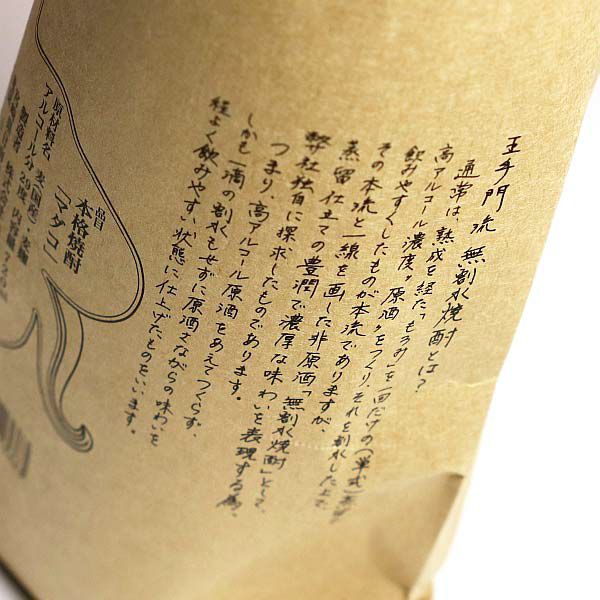 王手門流 無割水焼酎とは?
通常は、熟成を経た「もろみ」を一回だけの(単式)蒸留
高アルコール濃度〃原酒〃をつくり、それを割水した上で
飲みやすくしたものが本流でありますが、
その本流と一線を画した非原酒「無割水焼酎」として、
蒸留仕立ての豊潤で濃厚な味わいを表現する為、
弊社独自に探求したものであります。
つまり、高アルコール原酒をあえてつくらず、
しかも一滴の割水もせずに原酒さながらの味わいを
程よく飲みやすい状態に仕上げたものをいいます。
品目
本格焼酎
「マダコ」
原材料名 麦(国産)・麦麹
アルコール分 29度 内容量 720ml
製造者 株式会社